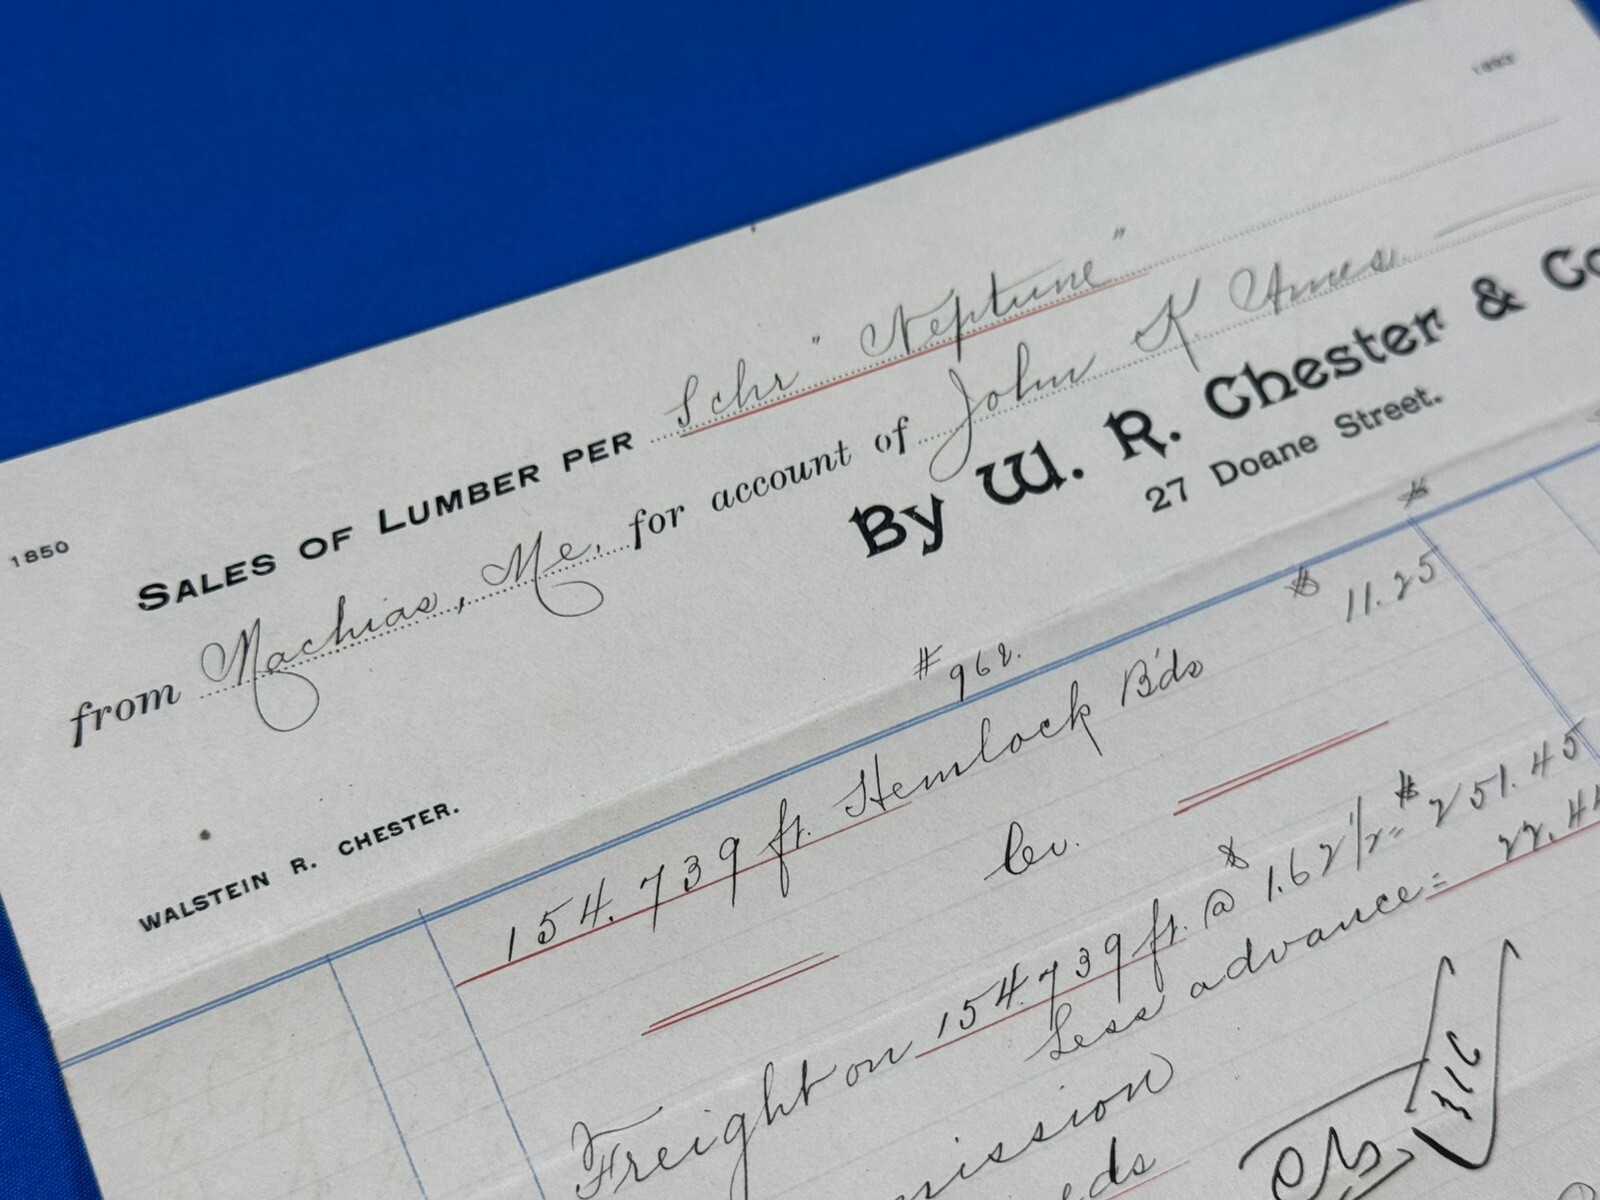 1850
SALES OF LUMBER PER Schr "Neptune"
from Machias, Me, for account of John K Ames
By W. R. Chester & Co
27 Doane Street.
WALSTEIN R. CHESTER.
#962.
$
154.739 ft. Hemlock B'ds $ 11.25
Cr.
Freight on 154.739 ft. @ $ 1.62 1/2 = $ 251.45
Less advance = 22.44
mission
eds